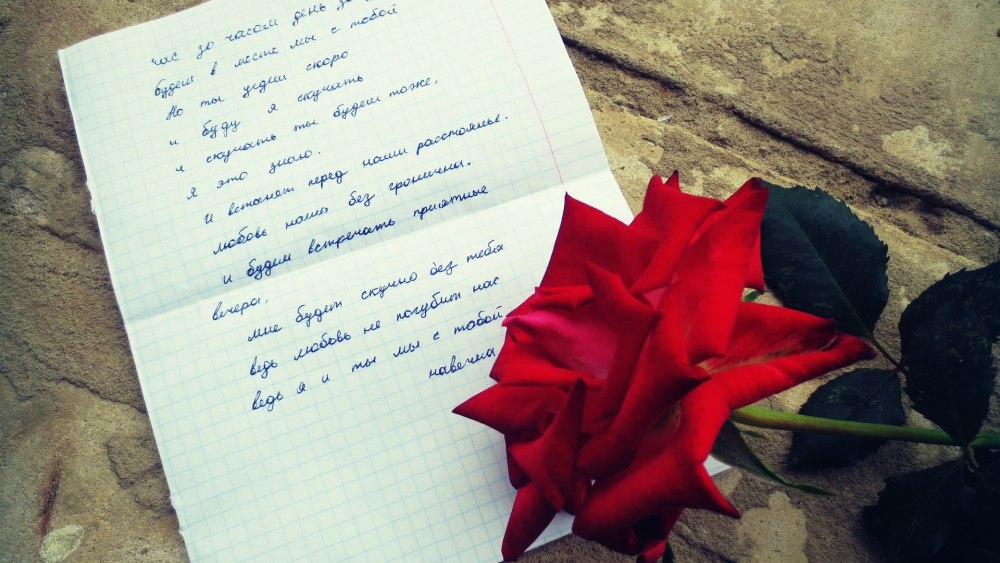 час за часом день за
будем в месте мы с тобой
Но ты уедеш скоро
и буду я скучать
и скучать ты будеш тоже,
я это знаю.
И встанет перед нами расстоянье.
любовь наша без граничны.
и будем встречать приятные
вечера.
мне будет скучно без тебя
ведь любовь не погубит нас
ведь я и ты мы с тобой
навечна